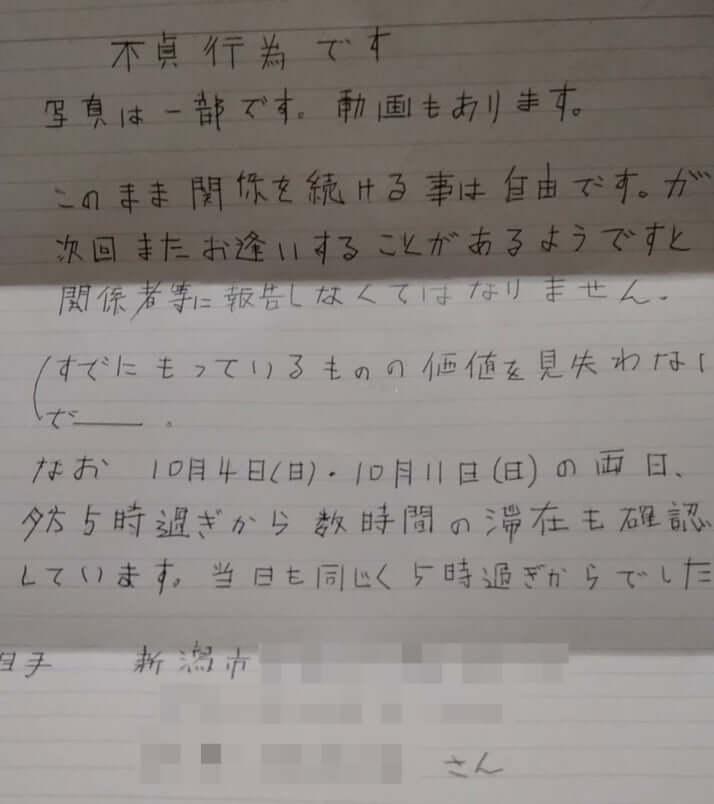 不貞行為です
写真は一部です。動画もあります。
このまま関係を続ける事は自由です。が
次回またお逢いすることがあるようですと
関係者等に報告しなくてはなりません.
(すでにもっているものの価値を見失わない
で―― .
なお 10月4日(日)・10月11日(日)の両日、
夕方5時過ぎから数時間の滞在も確認
しています。当日も同じく5時過ぎからでした
新潟市
さん